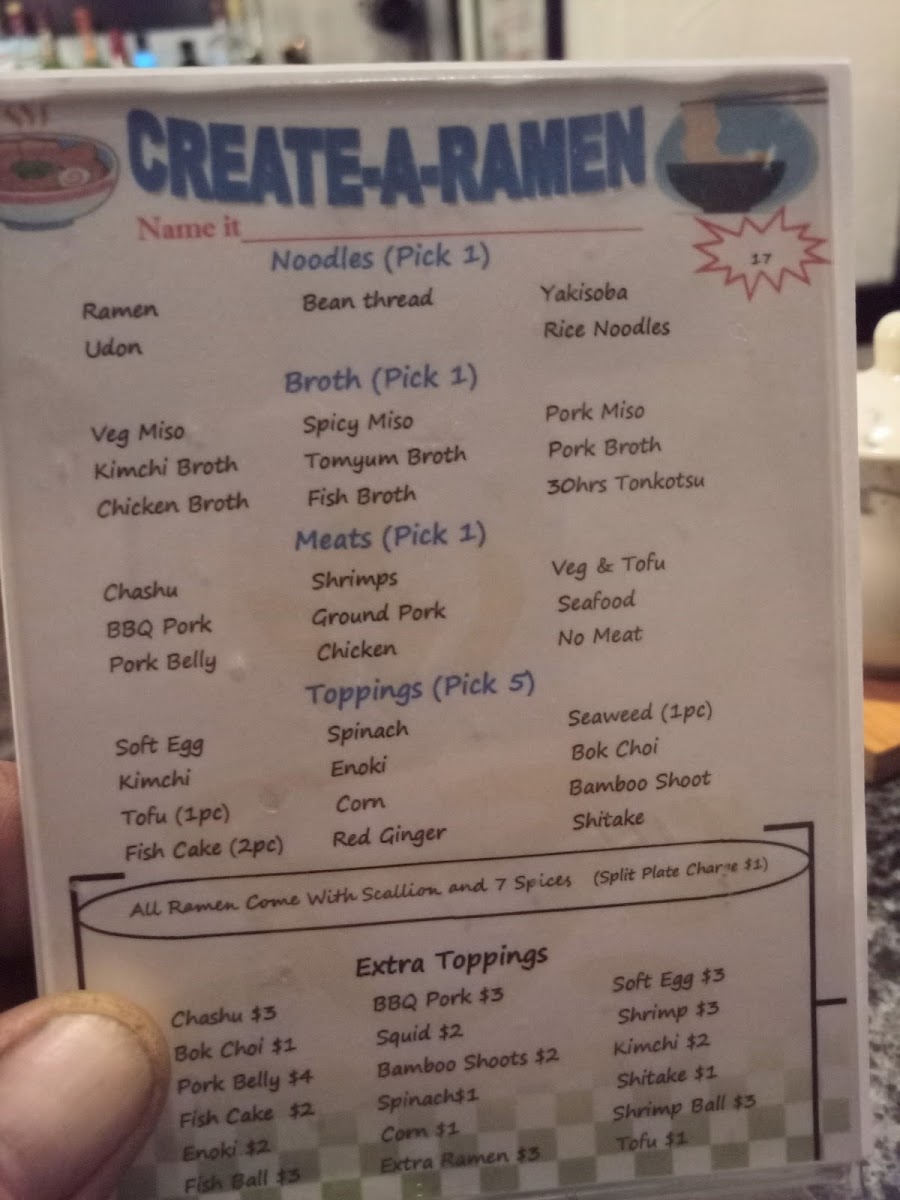 CREATE-A-RAMEN
Name it
17
Noodles (Pick 1)
Ramen Bean thread Yakisoba
Udon Rice Noodles
Broth (Pick 1)
Veg Miso Spicy Miso Pork Miso
Kimchi Broth Tomyum Broth Pork Broth
Chicken Broth Fish Broth 30hrs Tonkotsu
Meats (Pick 1)
Chashu Shrimps Veg & Tofu
BBQ Pork Ground Pork Seafood
Pork Belly Chicken No Meat
Toppings (Pick 5)
Soft Egg Spinach Seaweed (1pc)
Kimchi Enoki Bok Choi
Tofu (1pc) Corn Bamboo Shoot
Fish Cake (2pc) Red Ginger Shitake
All Ramen Come With Scallion and 7 Spices (Split Plate Charge $1)
Extra Toppings
Chashu $3 BBQ Pork $3 Soft Egg $3
Bok Choi $1 Squid $2 Shrimp $3
Pork Belly $4 Bamboo Shoots $2 Kimchi $2
Fish Cake $2 Spinach$1 Shitake $1
Enoki $2 Corn $1 Shrimp Ball $3
Fish Ball $3 Extra Ramen $3 Tofu $1